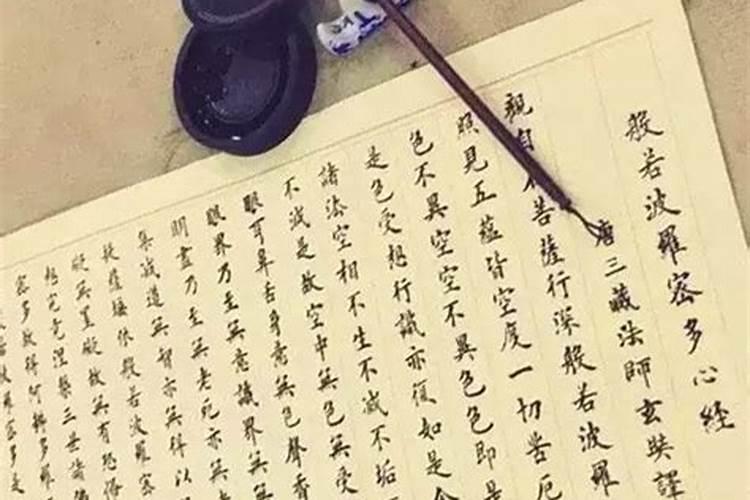 般若波羅密多心經
唐三藏法師玄奘譯
觀自菩薩行深般若波羅
照見五蘊皆空度一切苦厄
色不異空空不異色色即是
是色受想行識亦復如是舍
諸法空相不生不滅不垢
不減是故空中無色無受
眼耳鼻舌身意無色聲香
眼界乃至無意識界無
明盡乃至無老死亦無
集滅道無智亦無得以
提薩埵依般若波羅密
礙無罣礙故無有恐怖
想究竟涅槃三世諸
密多故得阿耨多羅
般若波羅密多是